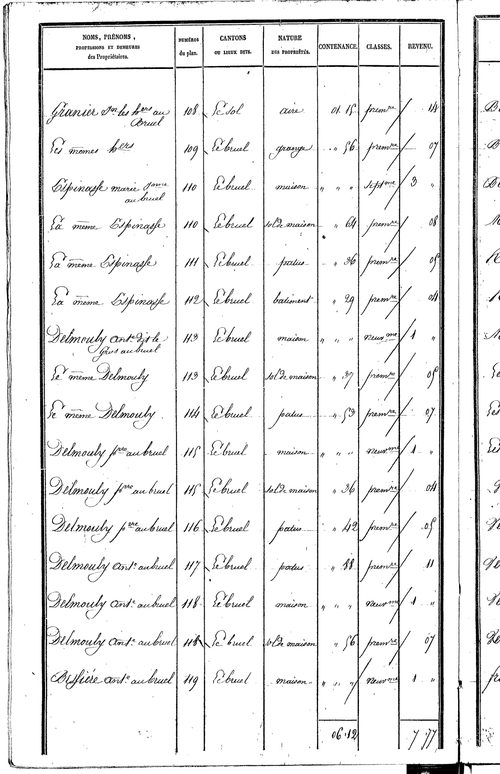 NOMS, PRÉNOMS, PROFESSIONS ET DEMEURES des Propriétaires. | NUMÉROS du plan. | CANTONS OU LIEUX DITS. | NATURE DES PROPRIÉTÉS. | CONTENANCE. | CLASSES. | REVENU.
Granier Jn les hers au 108 Le sol aire 01 15 premre 14
Bruel
Les mêmes hers 109 Le bruel grange " 56 premre 07
Espinasse marie 110 Le bruel maison " " " septme 3 "
au bruel
La même Espinasse 110 Le bruel sol de maison " 64 premre 08
La même Espinasse 111 Le bruel patus " 36 premre 05
La même Espinasse 112 Le bruel batiment " 29 premre 04
Delmouly ante dit le 113 Le bruel maison " " " neuvme 1 "
Gros au bruel
Le même Delmouly 113 Le bruel sol de maison " 37 premre 05
Le même Delmouly 114 Le bruel patus " 53 premre 07
Delmouly pre au bruel 115 Le bruel maison " " " neuvme 1 "
Delmouly pre au bruel 115 Le bruel sol de maison " 36 premre 04
Delmouly pre au bruel 116 Le bruel patus " 42 premre 05
Delmouly ante au bruel 117 Le bruel patus " 88 premre 11
Delmouly ante au bruel 118 Le bruel maison " " " neuvme 1 "
Delmouly ante au bruel 118 Le bruel sol de maison " 56 premre 07
Bessière ante au bruel 119 Le bruel maison " " " neuvme 1 "
06.12 7 77